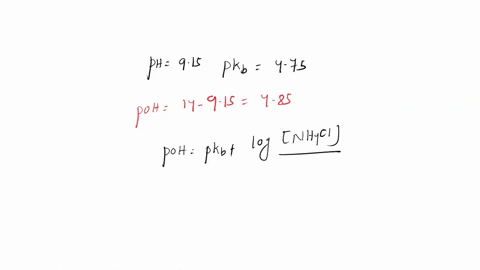 pH = 9.15 pkb = 4.75
pOH = 14 - 9.15 = 4.85
pOH = pkb + log [NH4Cl]